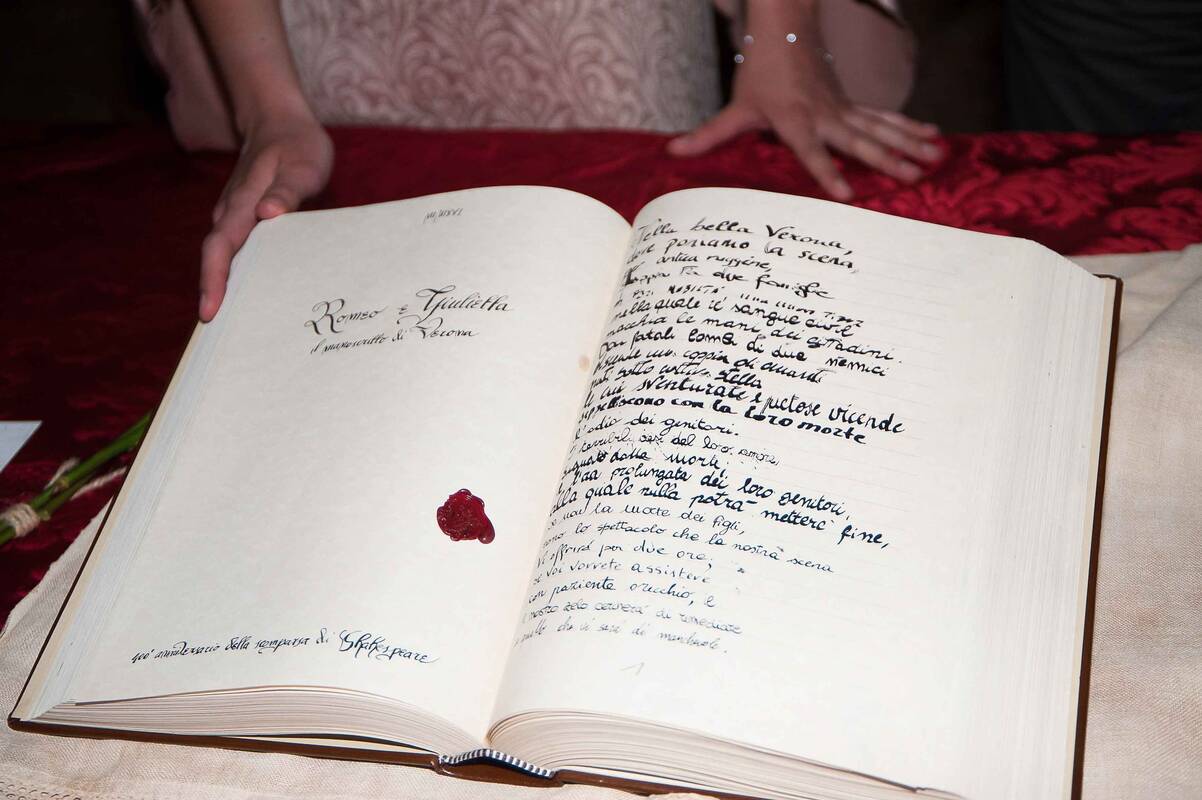 Romeo e Giulietta
il manoscritto di Verona
400° anniversario della scomparsa di Shakespeare
Nella bella Verona,
dove poniamo la scena,
antica ruggine,
due famiglie
nella quale il sangue civil
macchia le mani dei cittadini.
fatali lombi di due nemici
una coppia di amanti
nati sotto cattiva stella
le cui sventurate e pietose vicende
seppelliscono con la loro morte
l'odio dei genitori.
terribili del loro amore,
dalla morte,
l'ira prolungata dei loro genitori,
alla quale nulla potrà mettere fine,
se non la morte dei figli,
sono lo spettacolo che la nostra scena
vi offrirà per due ore;
se voi vorrete assistere
con paziente orecchio, e
il nostro zelo cercherà di rimediare
a quello che vi sarà di manchevole.
1